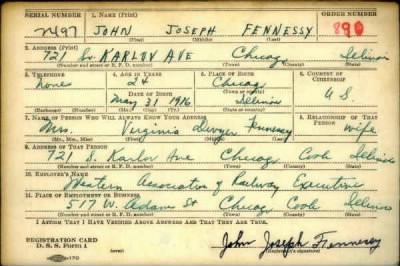 SERIAL NUMBER 1. NAME (Print) ORDER NUMBER
2497 JOHN JOSEPH FENNESSY 890
(First) (Middle) (Last)
2. ADDRESS (Print)
721 So KARLOV AVE Chicago Illinois
(Number and street or R. F. D. number) (Town) (County) (State)
3. TELEPHONE 4. AGE IN YEARS 5. PLACE OF BIRTH 6. COUNTRY OF CITIZENSHIP
None 24 Chicago
DATE OF BIRTH (Town or county)
May 31 1916 Illinois U.S.
(Exchange) (No.) (Mo.) (Day) (Yr.) (State or country)
7. NAME OF PERSON WHO WILL ALWAYS KNOW YOUR ADDRESS 8. RELATIONSHIP OF THAT PERSON
Mrs. Virginia Fennessy wife
(Mr., Mrs., Miss) (First) (Middle) (Last)
9. ADDRESS OF THAT PERSON
721 S. Karlov Ave Chicago Cook Illinois
(Number and street or R. F. D. number) (Town) (County) (State)
10. EMPLOYER'S NAME
Western Association of Railway Executive
11. PLACE OF EMPLOYMENT OR BUSINESS
517 W. Adams St Chicago Cook Illinois
(Number and street or R. F. D. number) (Town) (County) (State)
I AFFIRM THAT I HAVE VERIFIED ABOVE ANSWERS AND THAT THEY ARE TRUE.
REGISTRATION CARD
D. S. S. Form 1 John Joseph Fennessy
(over) (Registrant's signature)